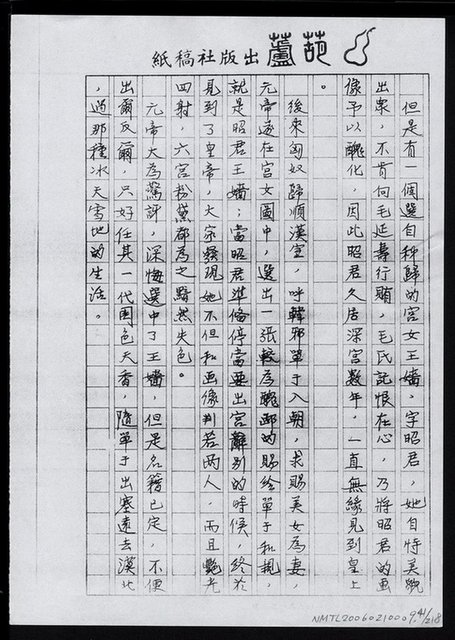 紙稿社版出蘆葫
但是有一個選自秭歸的宮女王嬙。字昭君,她自恃美貌
出衆,不肯向毛延壽行賄,毛氏記恨在心,乃將昭君的畫
像予以醜化,因此昭君久居深宮數年,一直無緣見到皇上
。
後來匈奴歸順漢室,呼韓邪單于入朝,求賜美女為妻,
元帝遂在宮女圖中,選出一張較為醜陋的賜給單于和親,
就是昭君王嬙;當昭君準備停當要出宮辭別的時候,終於
見到了皇帝,大家發現她不但和画像判若兩人,而且艷光
四射,六宮粉黛都為之黯然失色。
元帝大為驚訝,深悔選中了王嬙,但是名籍已定,不便
出爾反爾,只好任其一代國色天香,隨單于出塞遠去漠北
,過那種冰天雪地的生活。
NMTL20060210009